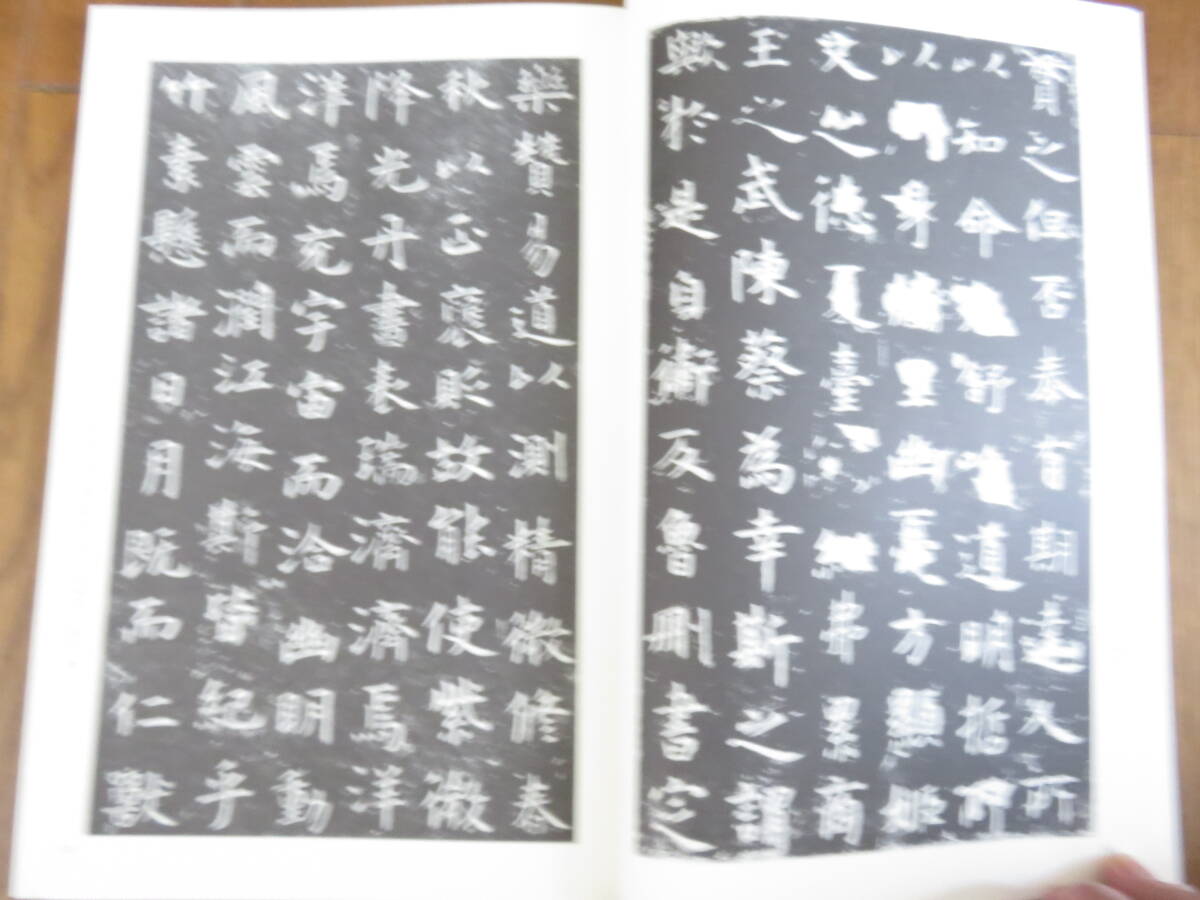 貴之但否泰有期達人所
以知命卷舒唯道明哲所
以周身牖里幽憂方顯姬
文之德夏臺紲弗累商
王之武陳蔡為幸斯之謂
歟於是自衛反魯刪書定
樂贊易道以測精微修春
秋以正褒貶故能使紫微
降光丹書表瑞濟濟焉洋
洋焉充宇宙而洽幽明動
風雲而潤江海斯皆紀乎
竹素懸諸日月既而仁獸